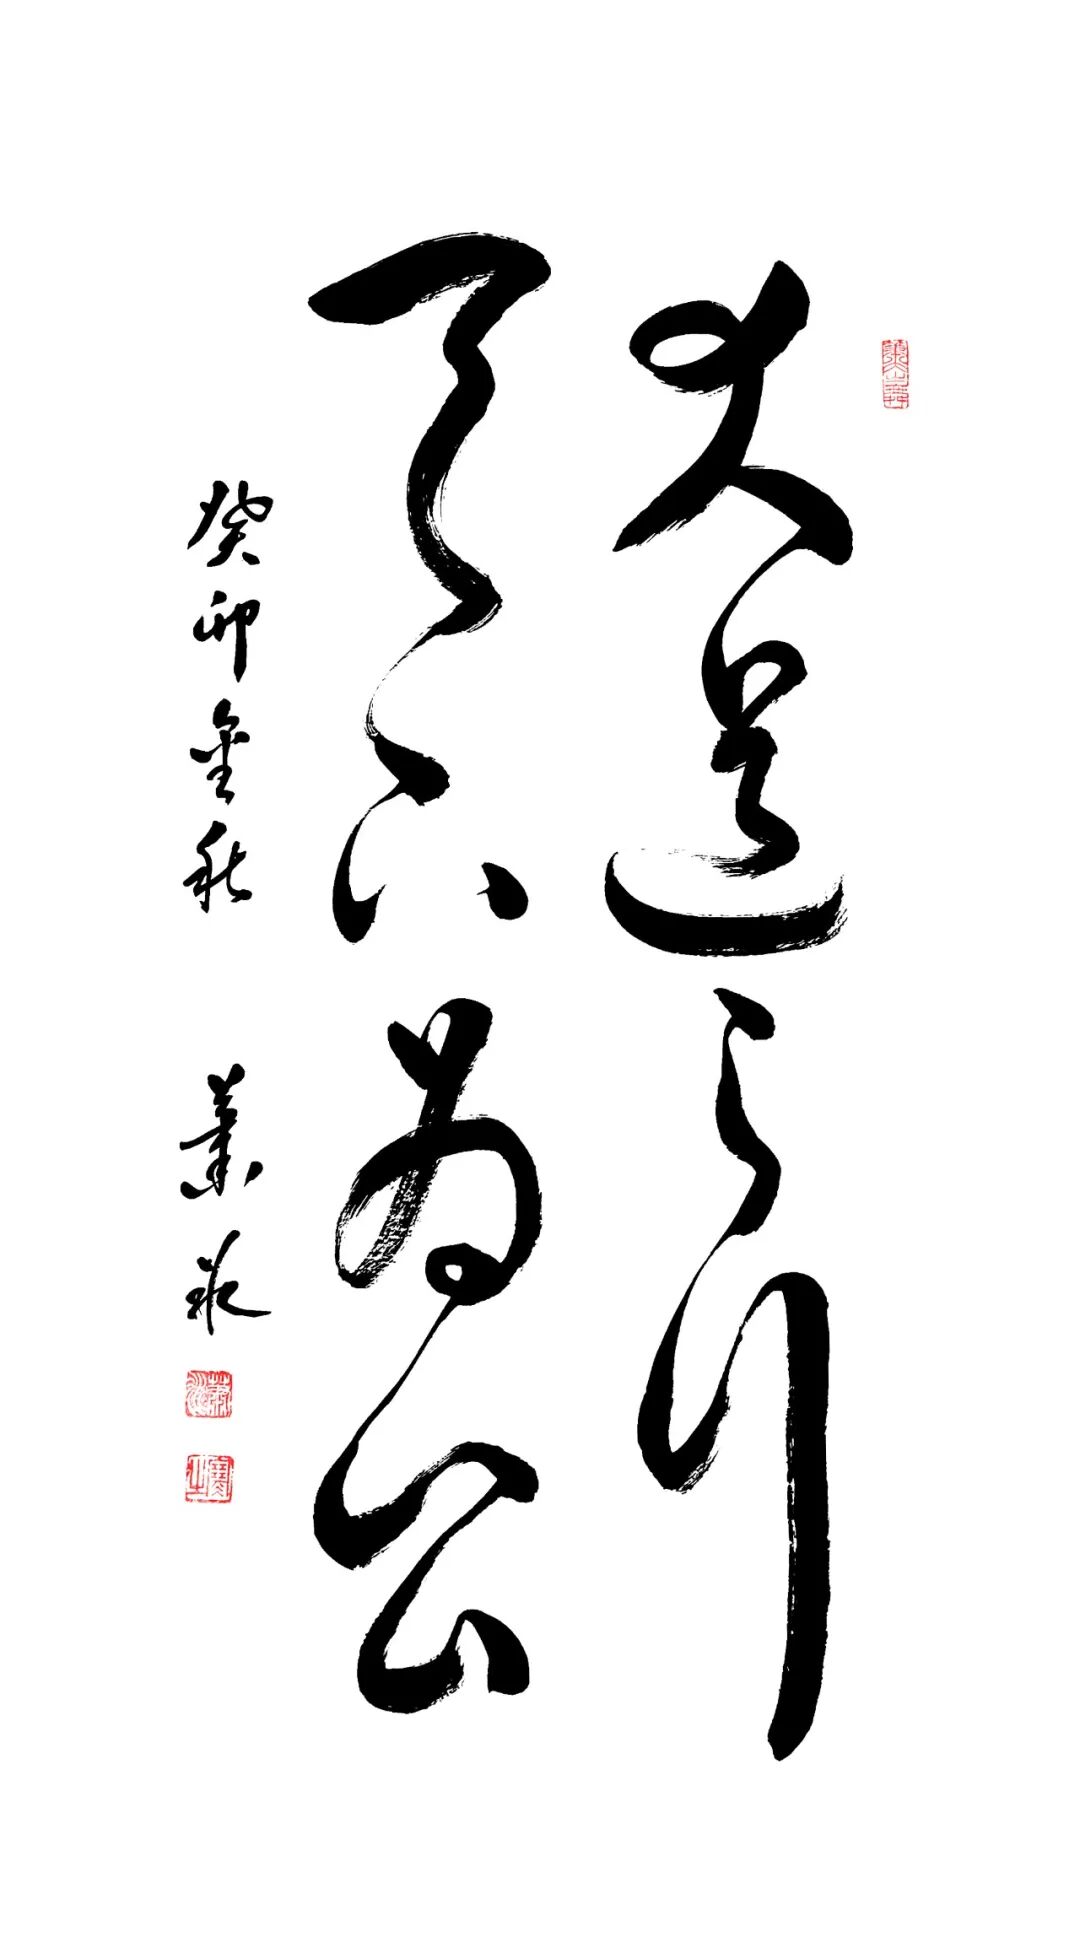 大道之行
天下为公
癸卯金秋